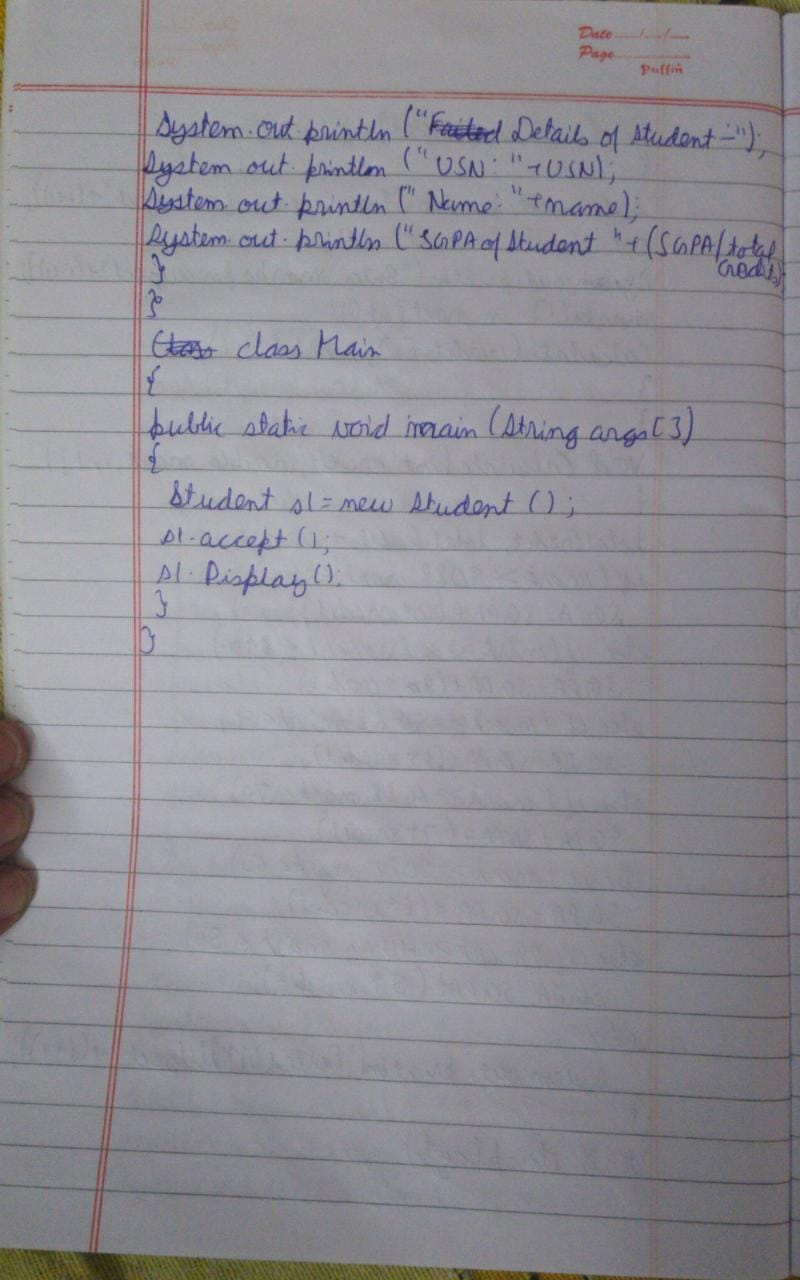 Date ...../...../.....
Page .....................
Puffin
System.out.println ("Failed Details of Student :-");
System out. println (" USN: "+USN);
System.out.println (" Name: "+name);
System.out.println ("SGPA of Student "+(SGPA/total
credits)
}
}
Class class Main
{
public static void main (String args[])
{
Student s1 = new Student ();
s1.accept ();
s1. Display();
}
}